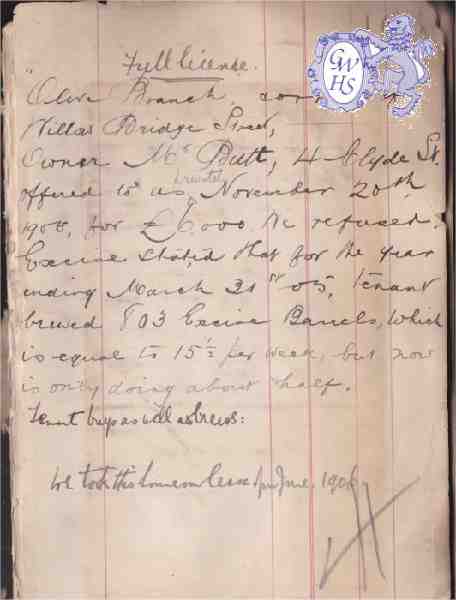 Full License.
"Olive Branch, cor
Willow Bridge Street,
Owner Mr Butt, 4 Clyde St.
offered to us privately November 20th
190 for £6,000. We refused.
Excise stated that for the year
ending March 31st 05, tenant
brewed 803 Excise Barrels, which
is equal to 15½ per week, but now
is only doing about half.
Tenant buys as well as brews:
We took this house on lease June, 1906
GWHS